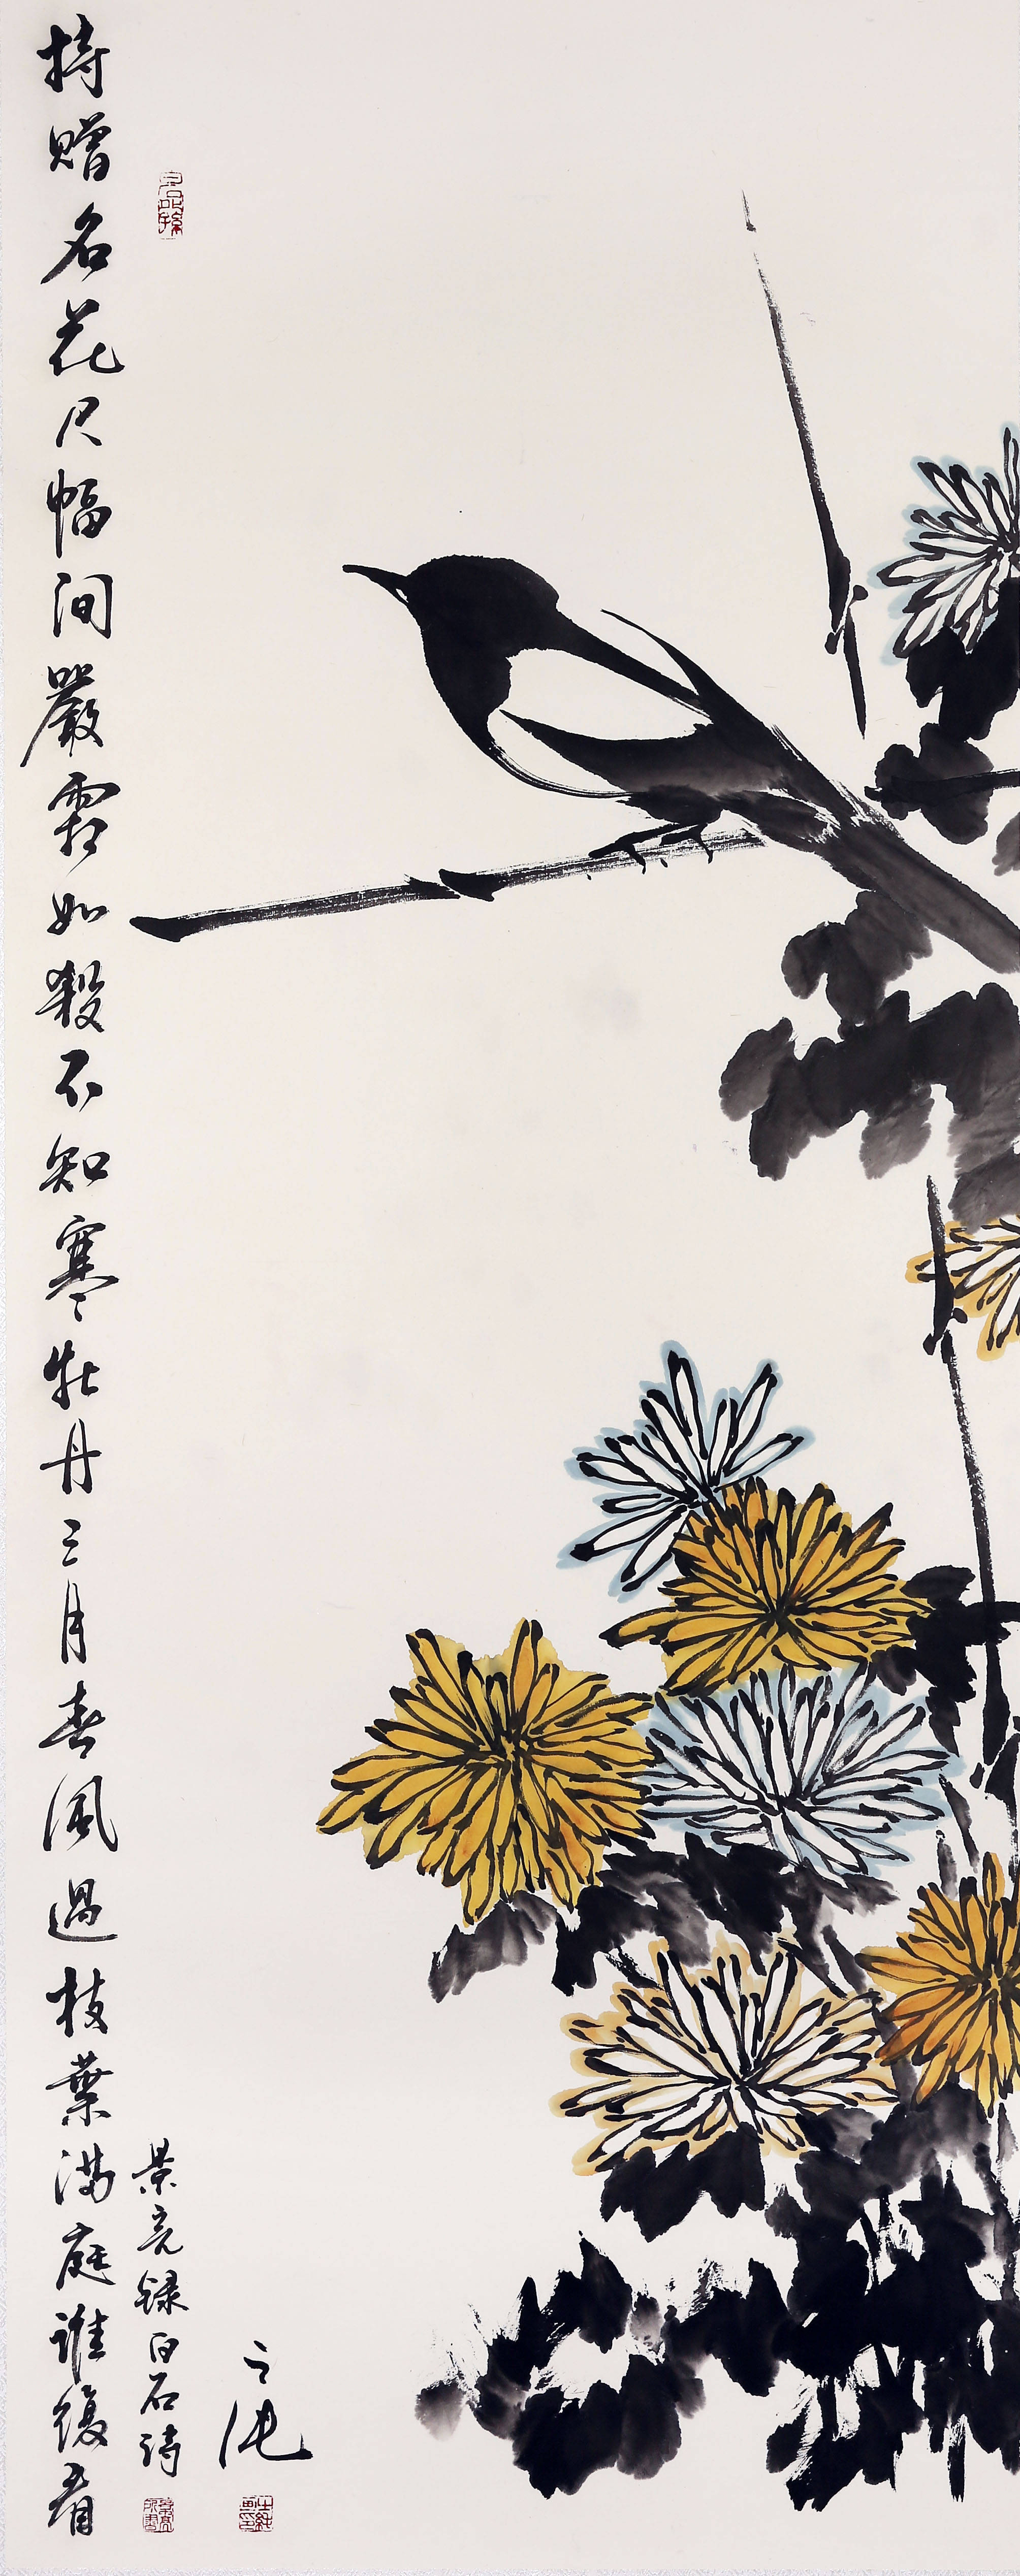 持贈名花尺幅間嚴霜如殺不知寒牡丹三月春風過枝葉滿庭誰復看
景亮録白石詩
之純